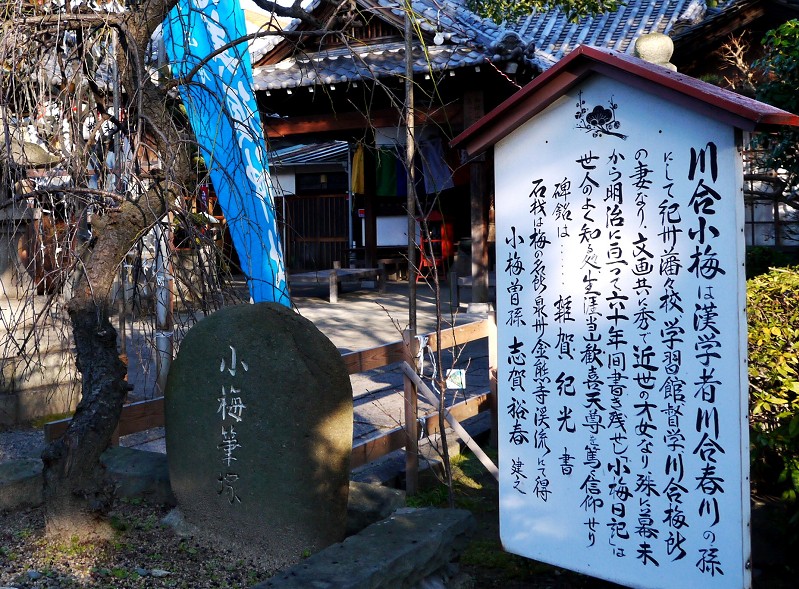 川合小梅は漢学者川合春川の孫
にして紀州藩々校、学習館督学川合梅所
の妻なり、文画共に秀で近世の才女なり殊に幕末
から明治に亘って六十年間書き残せし小梅日記は
世人のよく知る処生涯当山歓喜天尊を篤く信仰せり
碑銘は……雑賀 紀光 書
石材は梅の名所泉州金熊寺渓流にて得
小梅曽孫 志賀 裕春 建之
小梅筆塚